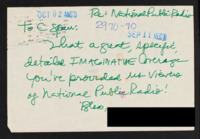 OCT 02 RECD
Re: National Public Radio
To C Span:
2970-70
SEP 11 RECD
What a great, specific,
detailed IMAGINATIVE Coverage
You've provided us Viewers
of National Public Radio!